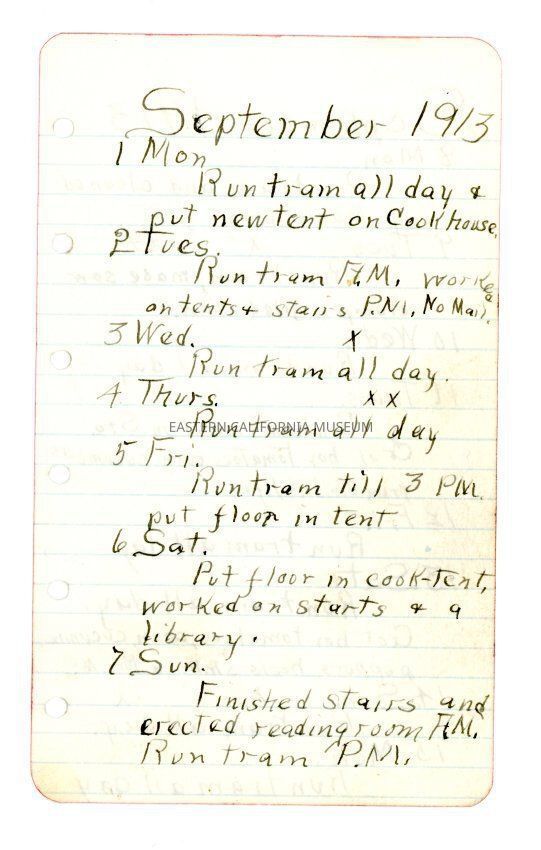 September 1913
1 Mon
Run tram all day &
put new tent on Cook house.
2 Tues.
Run tram A.M. worked
on tents & stairs P.M. No Mail.
3 Wed. X
Run tram all day.
4 Thurs. x x
EASTERN CALIFORNIA MUSEUM
Run tram all day
5 Fri.
Run tram till 3 PM.
put floor in tent
6 Sat.
Put floor in cook-tent,
worked on starts & a
library.
7 Sun.
Finished stairs and
erected reading room A.M.
Run tram P.M.